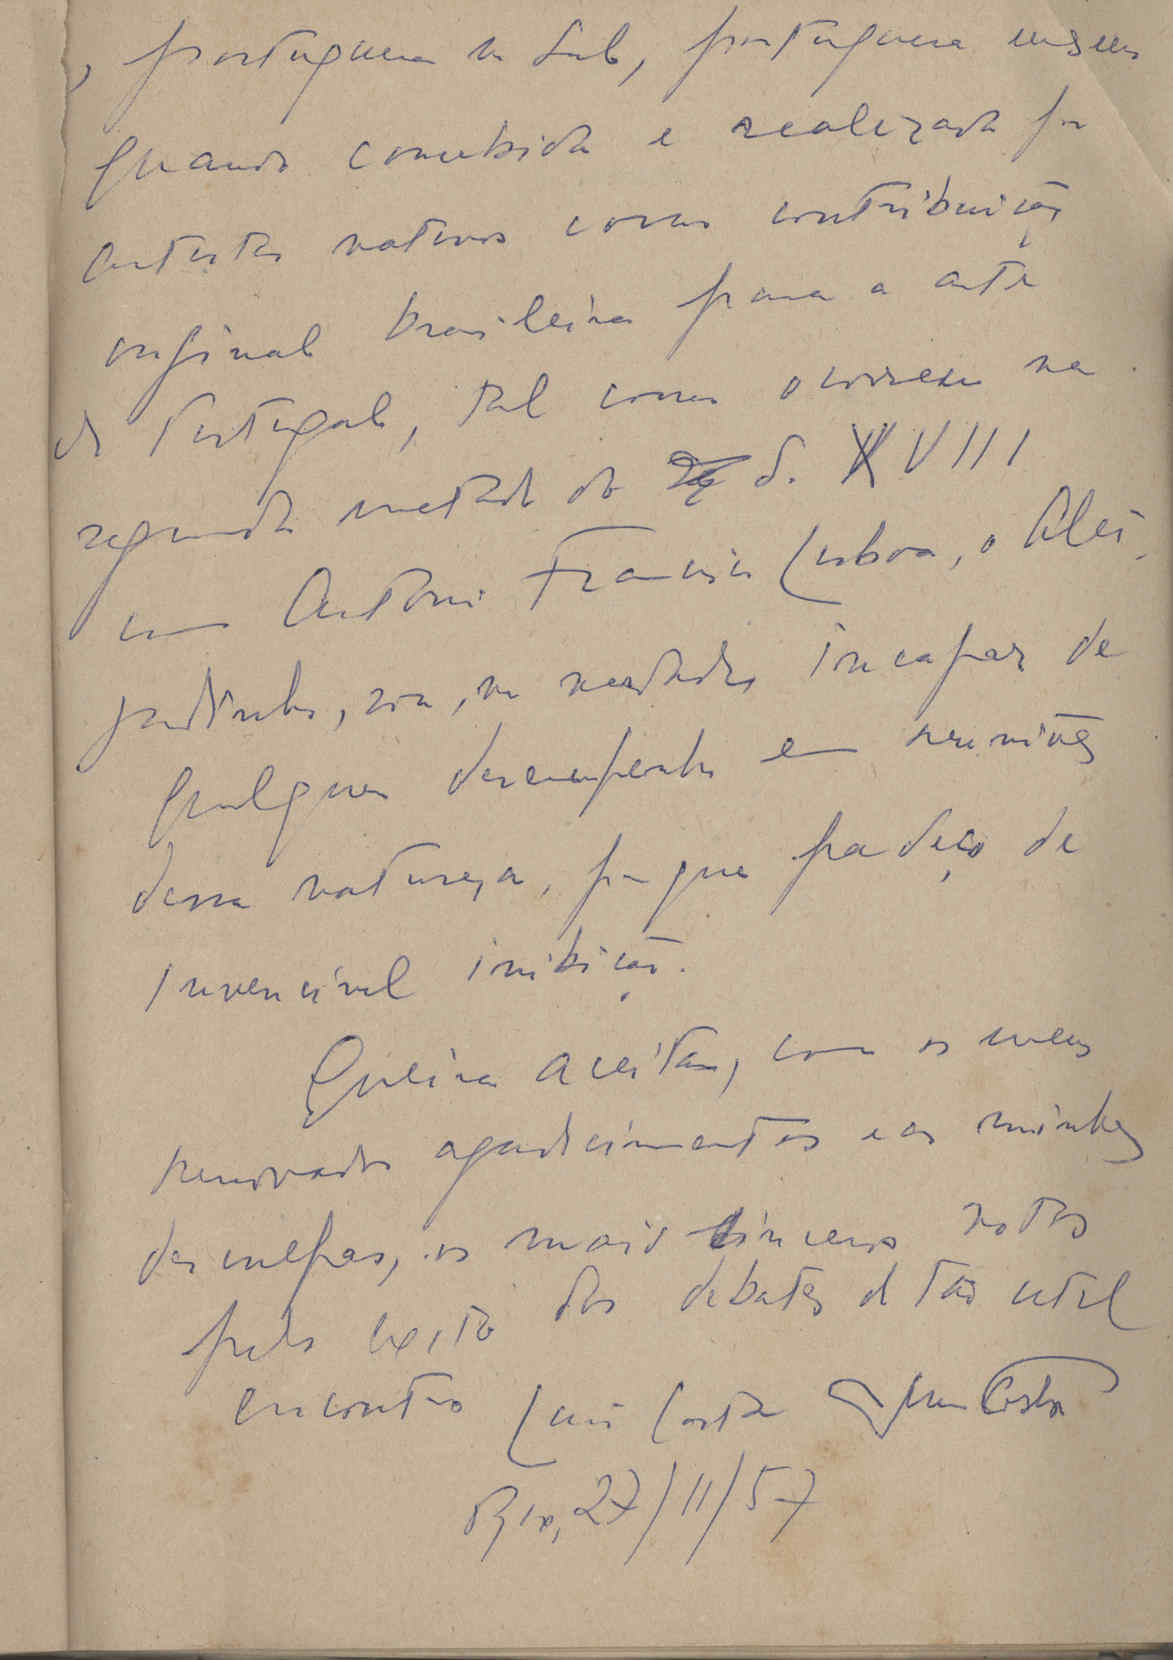 , portuguesa no Sul, portuguesa mesmo
quando concebida e realizada por
artistas nativos como contribuição
original brasileira para a arte
de Portugal, tal como ocorreu na
segunda metade do S. XVIII
com Antonio Francisco Lisboa, o Alei-
jadinho, sou, na verdade, incapaz de
qualquer desempenho em reuniões
dessa natureza, porque padeço de
invencivel inibição.
Queira aceitar, com os meus
renovados agradecimentos e as minhas
desculpas, os mais sinceros votos
pelo exito dos debates de tão util
encontro Lucio Costa Lucio Costa
Rio, 27/11/57